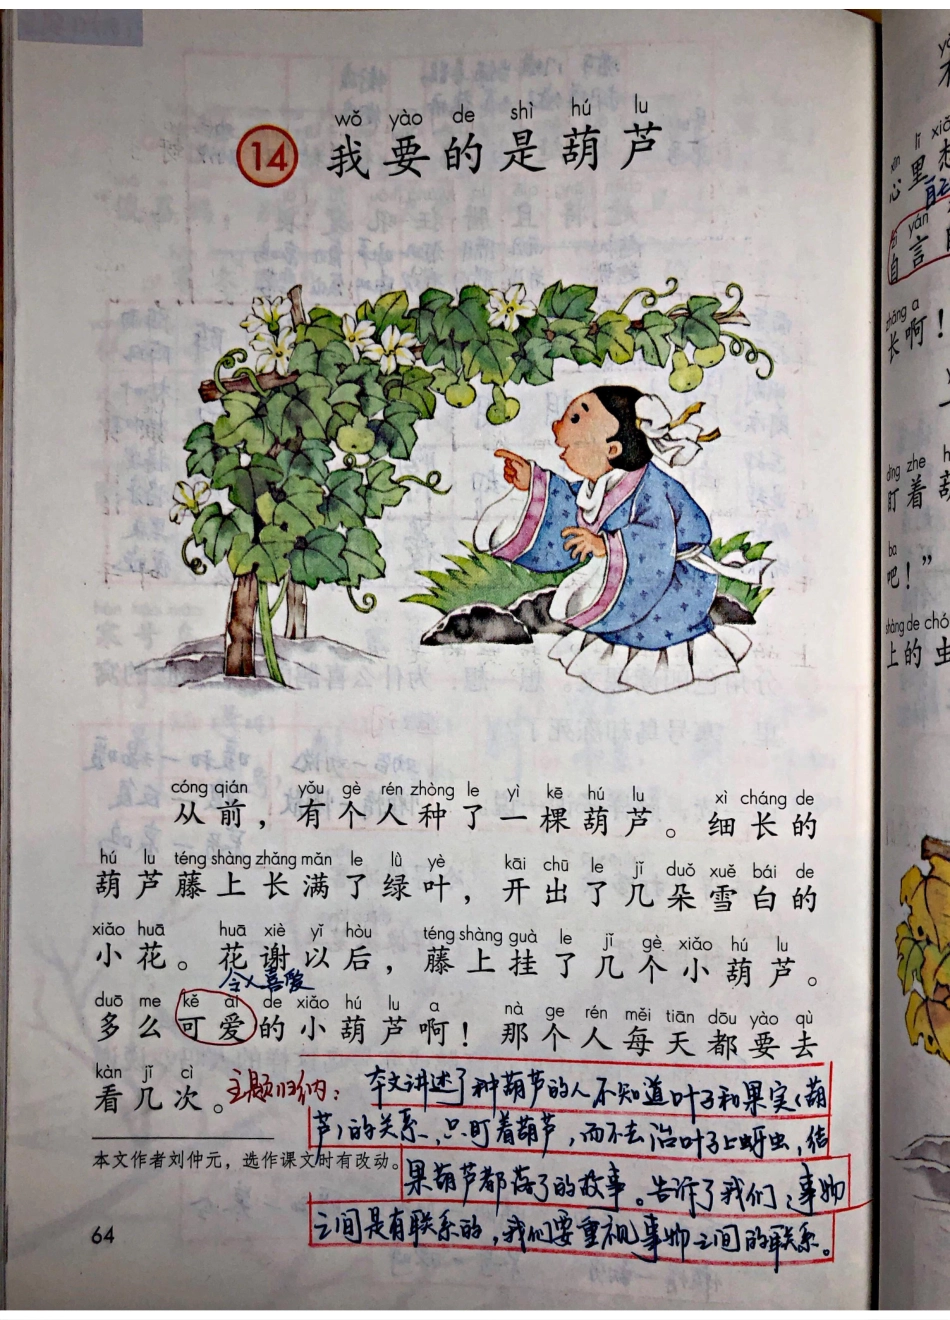 wǒ yào de shì hú lu
14 我要的是葫芦
cóng qián yǒu gè rén zhòng le yì kē hú lu xì cháng de
从前，有个人种了一棵葫芦。细长的
hú lu téng shàng zhǎng mǎn le lǜ yè kāi chū le jǐ duǒ xuě bái de
葫芦藤上长满了绿叶，开出了几朵雪白的
xiǎo huā huā xiè yǐ hòu téng shàng guà le jǐ gè xiǎo hú lu
小花。花谢以后，藤上挂了几个小葫芦。
令人喜爱
duō me kě ài de xiǎo hú lu a nà ge rén měi tiān dōu yào qù
多么可爱的小葫芦啊！那个人每天都要去
kàn jǐ cì
看几次。
主题归纳：本文讲述了种葫芦的人不知道叶子和果实（葫
芦）的关系，只盯着葫芦，而不去治叶子上蚜虫，结
果葫芦都落了的故事。告诉了我们：事物
之间是有联系的，我们要重视事物之间的联系。
本文作者刘仲元，选作课文时有改动。
64
xīn lǐ
心里
yán
自言
zhǎng a
长啊！
dīng zhe
盯着葫
ba
吧！”
shàng de chó
上的虫